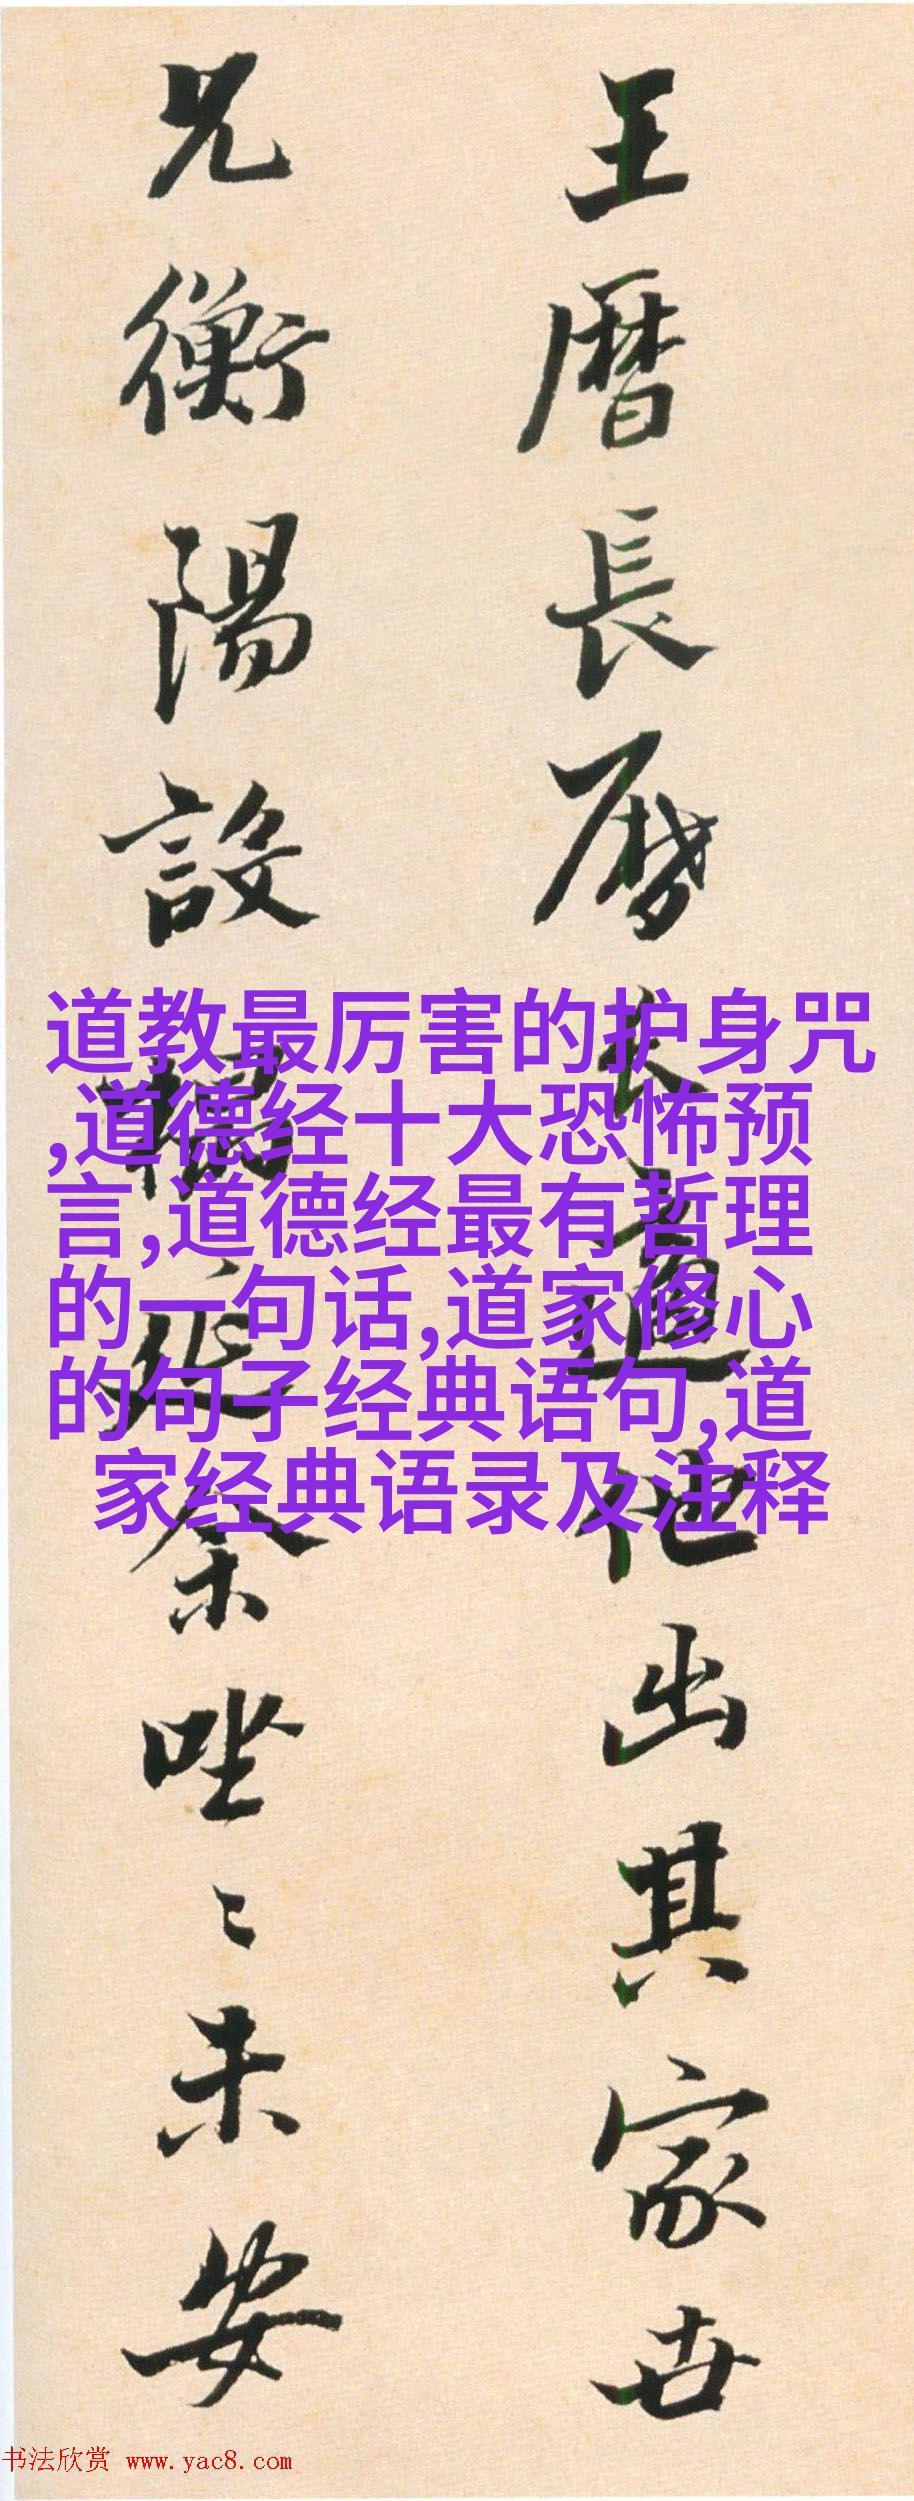 王曆長曆
道他出其家世
兄衡陽設
延余唑
〻未安
道教最厉害的护身咒
,道德经十大恐怖预
言,道德经最有哲理
的一句话,道家修心
的句子经典语句,道
家经典语录及注释
书法欣赏 www.yac8.com